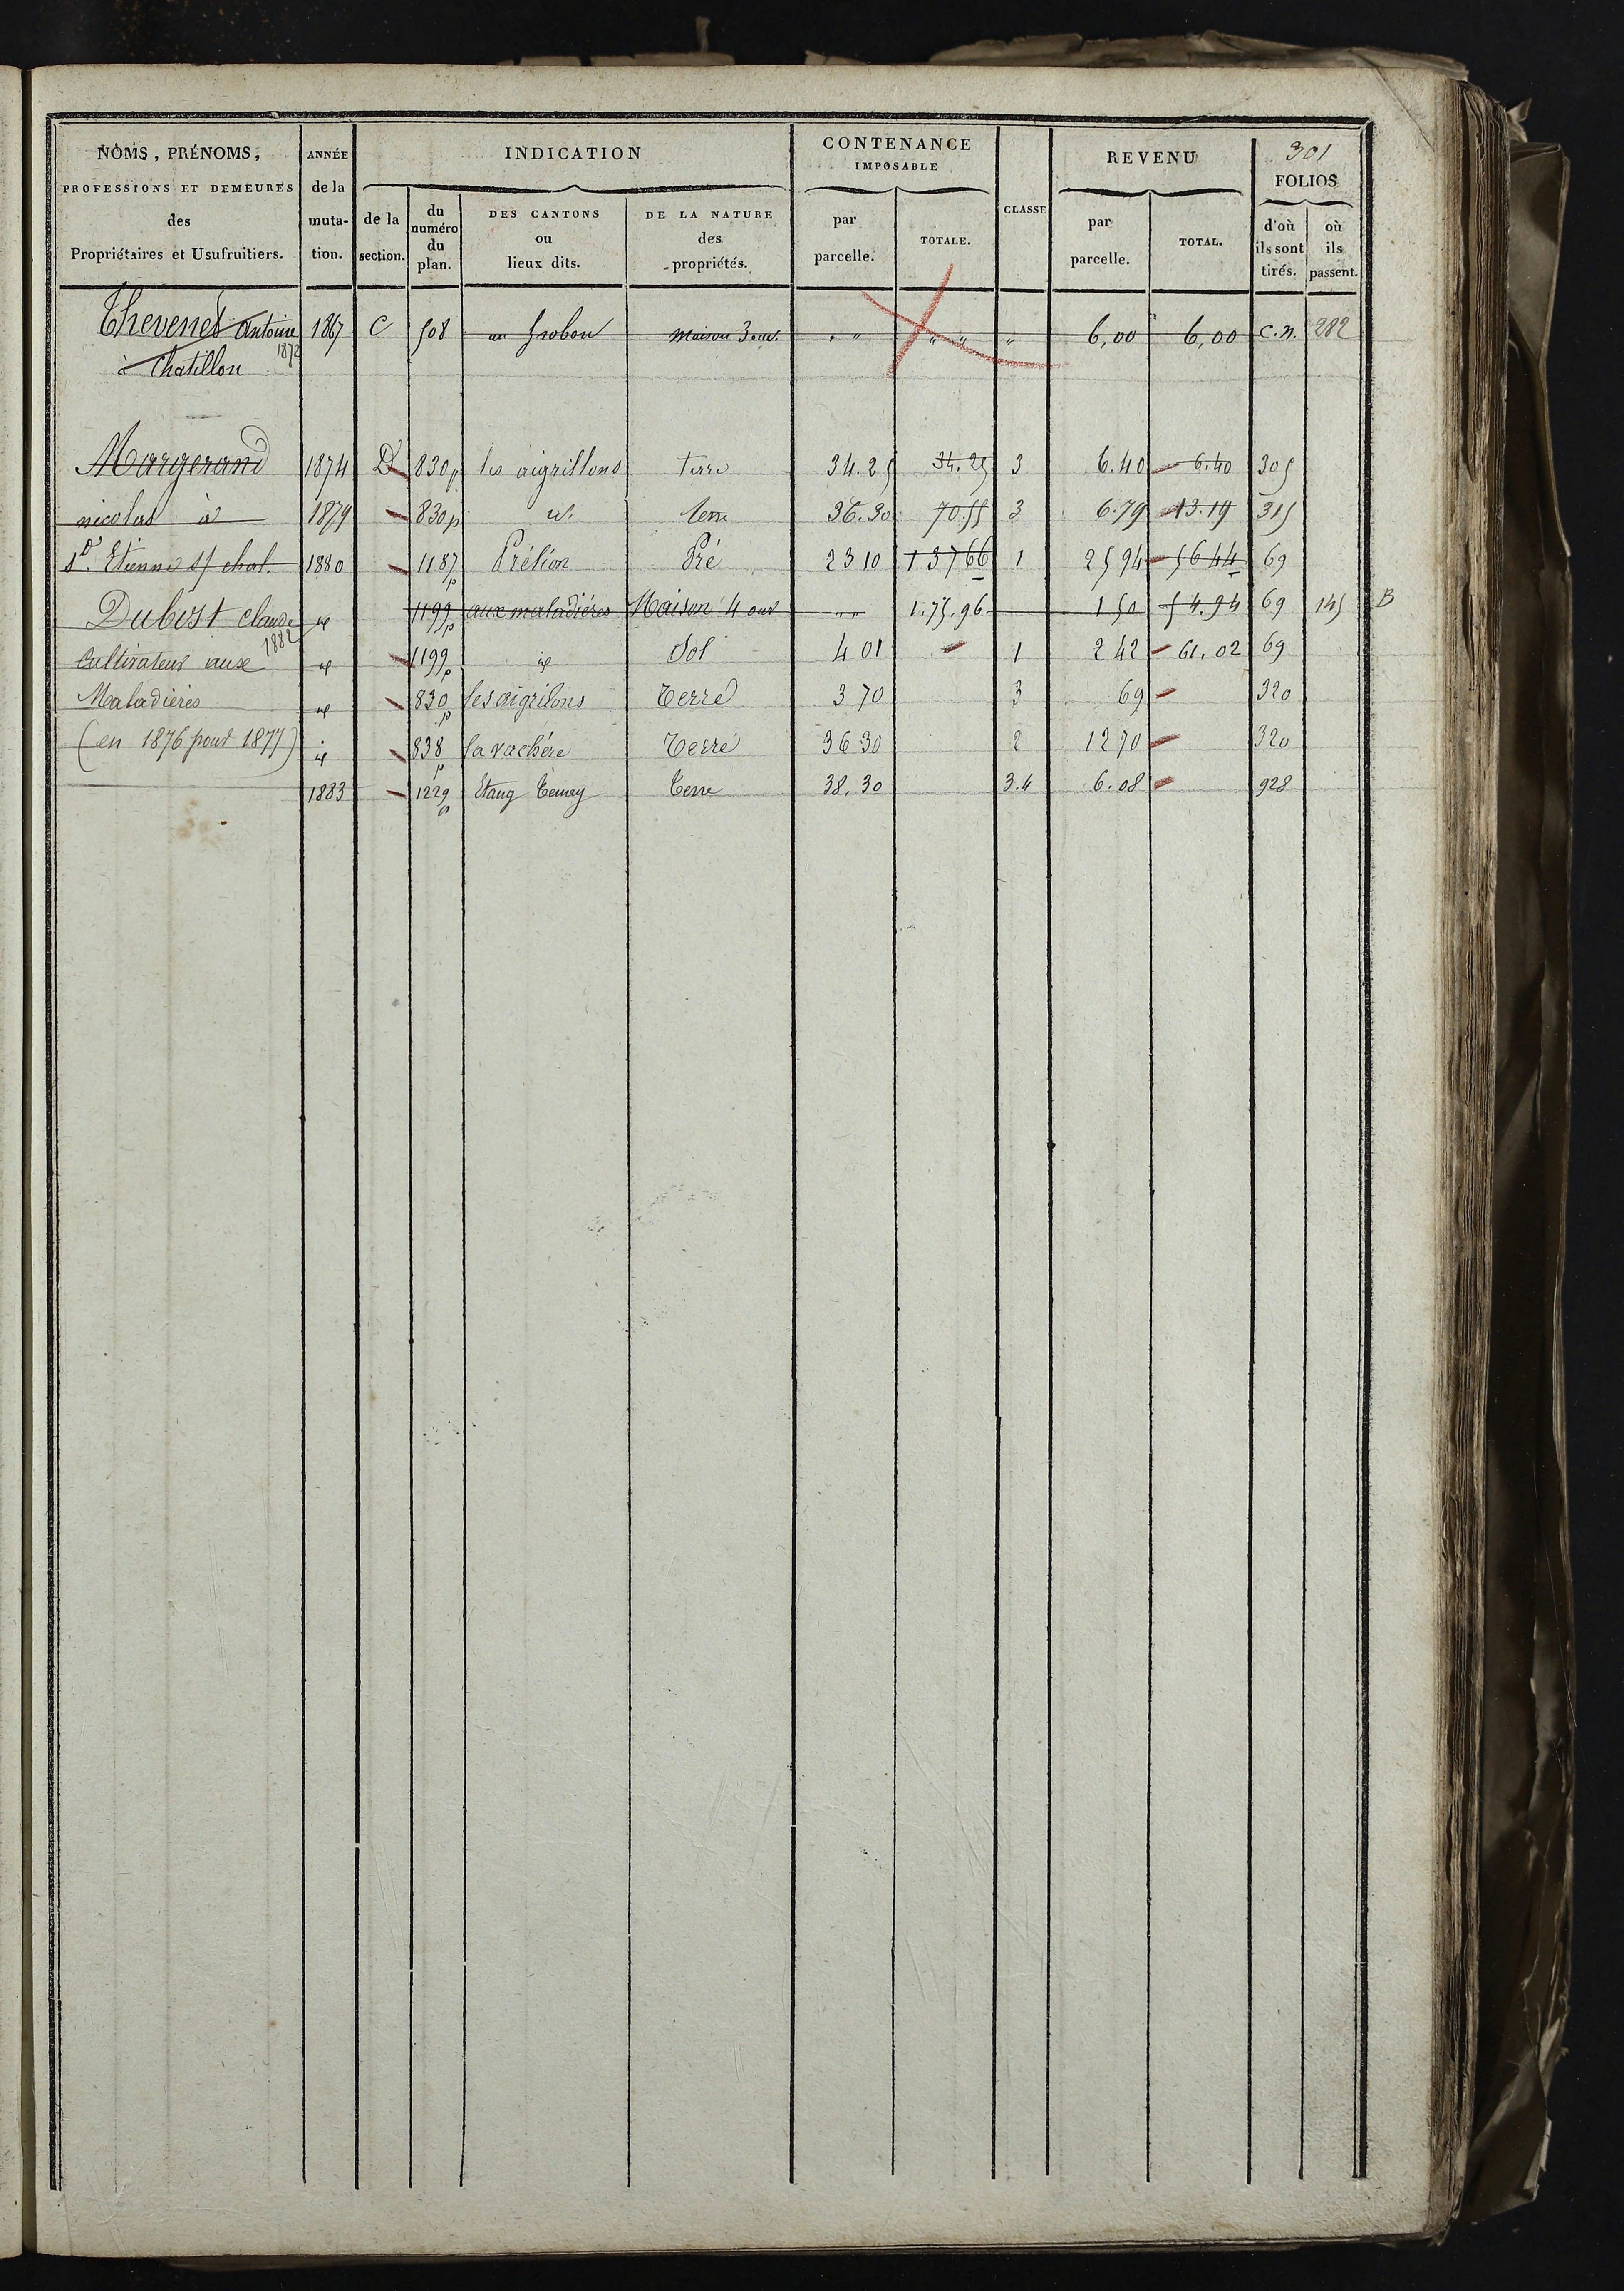 301
NOMS, PRÉNOMS, PROFESSIONS ET DEMEURES des Propriétaires et Usufruitiers.
ANNÉE de la muta-tion.
INDICATION
de la section.
du numéro du plan.
DES CANTONS ou lieux dits.
DE LA NATURE des propriétés.
CONTENANCE IMPOSABLE
par parcelle.
TOTALE.
CLASSE
REVENU
par parcelle.
TOTAL.
FOLIOS
d'où ils sont tirés.
où ils passent.
Thevenet Antoine 1867 C 508 au maison 3 ouv. " " " " " 6,00 6,00 C.N. 282
1872
à Chatillon
Margerand 1874 D 830p les aigrillons terre 34.25 34.25 3 6.40 6.40 305
nicolas à 1879 830p id. terre 36.30 70.55 3 6.79 13.19 315
St. Etienne s/ chal. 1880 1187p Prélion Pré 23 10 137 66 1 25 94 56 44 69
Dubost claude id 1199p aux maladières Maison 4 ouv " " 1.75.96 1 50 54.94 69 145 B
1882
Cultivateur aux id 1199p id Sol 4 01 1 2 42 61.02 69
Maladières id 830p les aigrilons Terre 3 70 3 69 320
(en 1876 pour 1877) id 838p la vachère Terre 36 30 2 12 70 320
1883 1229p Etang Terre 38.30 3.4 6.08 928